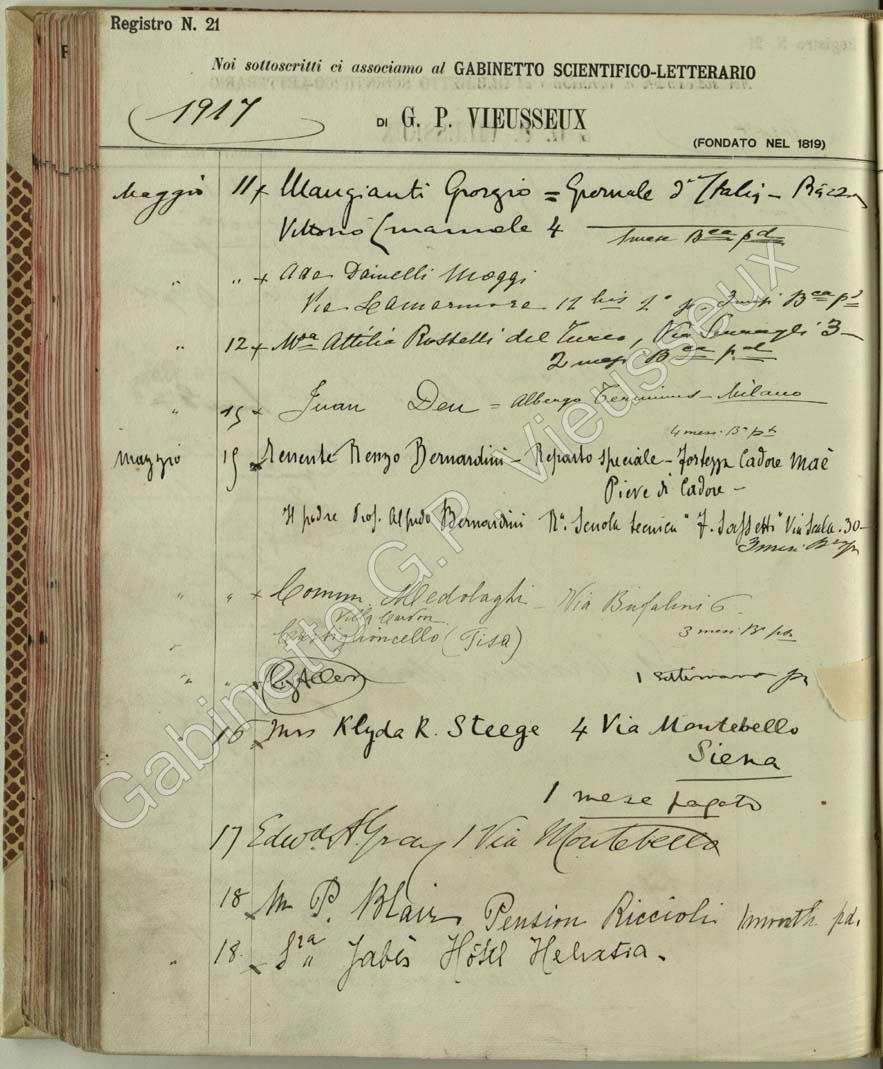 Registro N. 21
Noi sottoscritti ci associamo al GABINETTO SCIENTIFICO-LETTERARIO
1917
DI G. P. VIEUSSEUX
(FONDATO NEL 1819)
Maggio 11 x Mangianti Giorgio = Giornale d'Italia -
Vittorio Emanuele 4 1 mese Bca pd
" " x Ada Dainelli Maggi
Via Lamarmora 12 bis 2° p. 3 mesi Bca pd
" 12 x Attilia Rosselli del Turco, Via 3 -
2 mesi Bca p.d
" 15 x Juan Deu = Albergo Terminus - Milano
4 mesi Ba pd
Maggio 15 Renzo Bernardini - Reparto speciale - Fortezza Cadore Maè
Pieve di Cadore -
Il padre Prof. Alfredo Bernardini Ra. Scuola tecnica "F. Sassetti" Via Scala. 30 -
3 mesi
" " x Comm. Medolaghi - Via Bufalini 6
Villa
Castiglioncello (Pisa) 3 mesi Ba pd
" " 1 settimana
" 16 Mrs Klyda R. Steege 4 Via Montebello
Siena
1 mese pagato
17 Edwd. A. Gray 1 Via Montebello
18 P. Blair Pension Riccioli 1 month pd.
" 18. Sra " Jabès Hôtel Helvetia.
Gabinetto G.P. Vieusseux